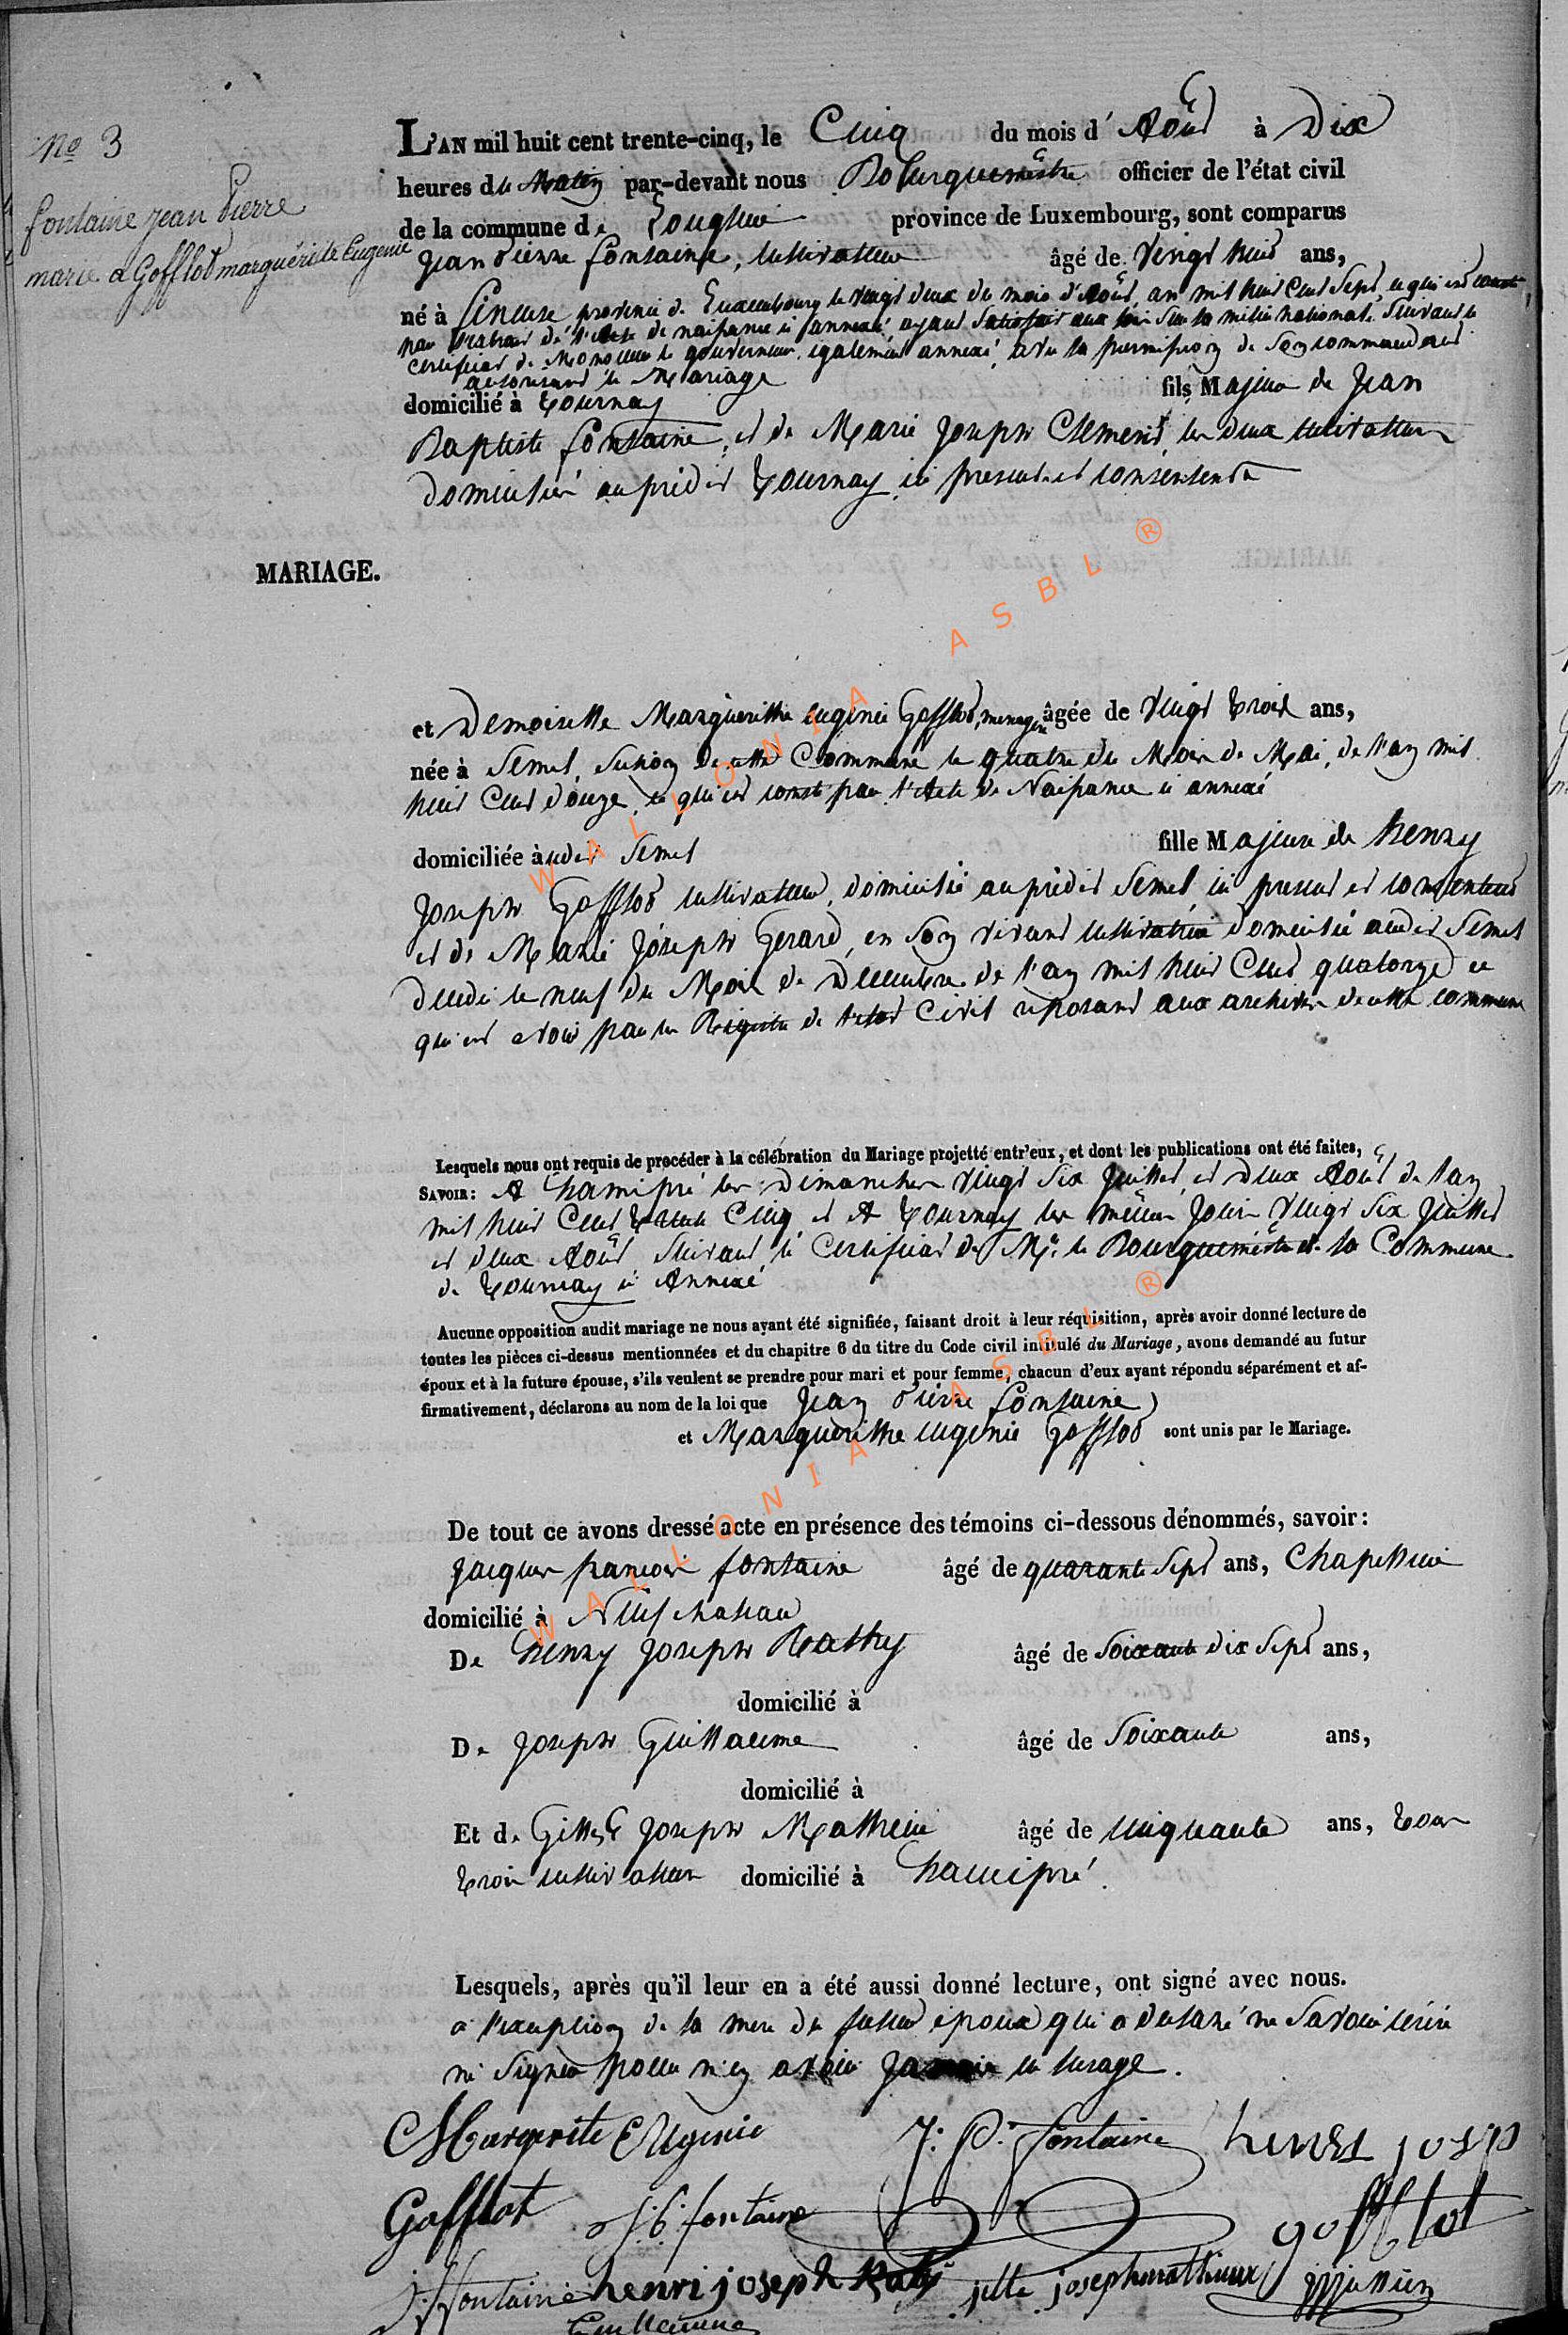 No 3
fontaine jean Pierre
marié a Gofflot marguérite Eugenie
L'AN mil huit cent trente-cinq, le Cinq du mois d' Août à Dix
heures du Matin par-devant nous Bourguemêstre officier de l'état civil
de la commune de province de Luxembourg, sont comparus
Jean Pierre fontaine, cultivateur âgé de Vingt huit ans,
né à province de Luxembourg le vingt deux du mois d'Août, an mil huit Cent Sept, ce qui est constaté
par l'extrait de l'acte de naissance ci annexé ayant satisfait aux lois sur la milice nationale Suivant le
certificat de Monsieur le gouverneur, également annexé, avec la permission de Son commandant
autorisant le Mariage
domicilié à Tournay fils Majeur de Jean
Baptiste fontaine, et de Marie Joseph Clement, les deux cultivateurs
domicilié au prédit Tournay ici present et consentent
MARIAGE.
et Demoiselle Marguerithe eugenie Gofflot, menagere âgée de Vingt trois ans,
née à Semel, Section de cette Commune le quatre du Mois de Mai, de l'an mil
huit Cent douze, ce qui est constaté par l'Acte de Naissance ci annexé
domiciliée audit Semel fille Majeure de henry
Joseph Gofflot cultivateur, domicilié au prédit Semel, ici present et consentant
et de Marie Joseph Gerard, en Son vivant cultivatrice domiciliée audit Semel
décédée le neuf du Mois de Decembre de l'an mil huit Cent quatorze ce
qui est à voir par les Régistre de l'etat Civil reposant aux archives de cette commune
Lesquels nous ont requis de procéder à la célébration du Mariage projetté entr'eux, et dont les publications ont été faites,
SAVOIR: A hamipré les Dimanches Vingt Six Juillet, et deux Août de l'an
mil huit Cent trente Cinq et A Tournay les mêmes Jours Vingt Six Juillet
et deux Août Suivant le Certificat de Mr. le Bourguemêstre de la Commune
de Tournay ci Annexé
Aucune opposition audit mariage ne nous ayant été signifiée, faisant droit à leur réquisition, après avoir donné lecture de
toutes les pièces ci-dessus mentionnées et du chapitre 6 du titre du Code civil intitulé du Mariage, avons demandé au futur
époux et à la future épouse, s'ils veulent se prendre pour mari et pour femme, chacun d'eux ayant répondu séparément et af-
firmativement, déclarons au nom de la loi que Jean Pierre fontaine
et Marguerithe eugenie Gofflot sont unis par le Mariage.
De tout ce avons dressé acte en présence des témoins ci-dessous dénommés, savoir:
Jacques francois fontaine âgé de quarante Sept ans, Chapellier
domicilié à Neufchateau
De henry Joseph Rathy âgé de Soixante dix Sept ans,
domicilié à
De Joseph Guillaume âgé de Soixante ans,
domicilié à
Et de Gilles Joseph Mathieu âgé de cinquante ans, tous
trois cultivateurs domicilié à hamipré.
Lesquels, après qu'il leur en a été aussi donné lecture, ont signé avec nous.
a l'exception de la mere du futur époux qui a déclaré ne Savoir écrire
ni Signer pour n'en avoir Jamais eu l'usage.
Marguerite Eugenie J: P. fontaine henri josep
Gofflot J: b. fontaine gofflot
J: f fontaine henri joseph Raty jille joseph mathieux
Guillaume
WALLONIA ASBL ®
WALLONIA ASBL ®